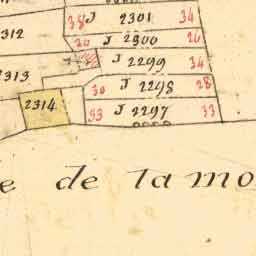 38 J 2301 34
2312
30 J 2300 26
J 2299 34
2313
30 J 2298 28
2314
33 J 2297 33
e de la mo